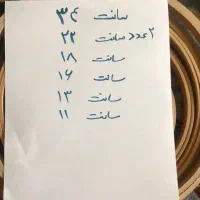 ۳۴ سانت
۲ عدد سانت ۲۲
۱۸ سانت
۱۶ سانت
۱۳ سانت
۱۱ سانت